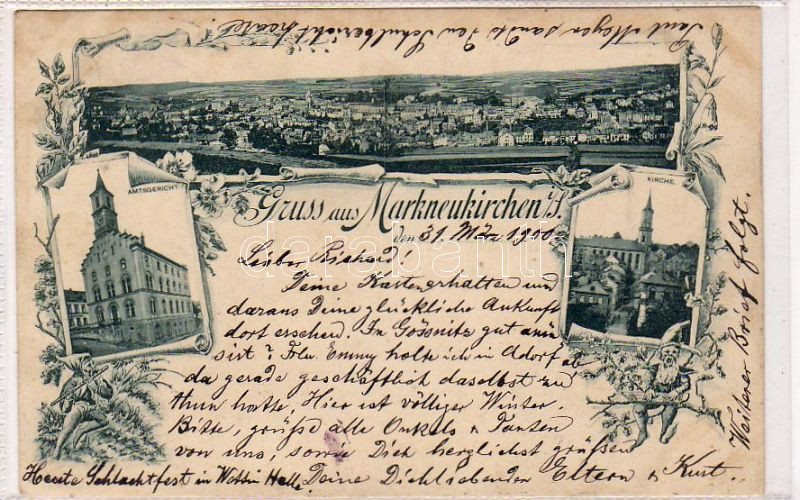 Paul Meyer sandte den Schulbericht heute!
AMTSGERICHT.
KIRCHE.
Gruss aus Markneukirchen i/S.
den 31. März 1900.
darabanth
Lieber Richard!
Deine Karten erhalten und
daraus Deine glückliche Ankunft
dort ersehen. In Gössnitz gut amü-
sirt? Frl. Emmy holte ich in Adorf ab
da gerade geschäftlich daselbst zu
thun hatte. Hier ist völliger Winter.
Bitte, grüße alle Onkels & Tanten
von uns, sowie Dich herzlichst grüßen
Deine Dichliebenden Eltern & Kurt.
Heute Schlachtfest in Halle.
Weiterer Brief folgt.